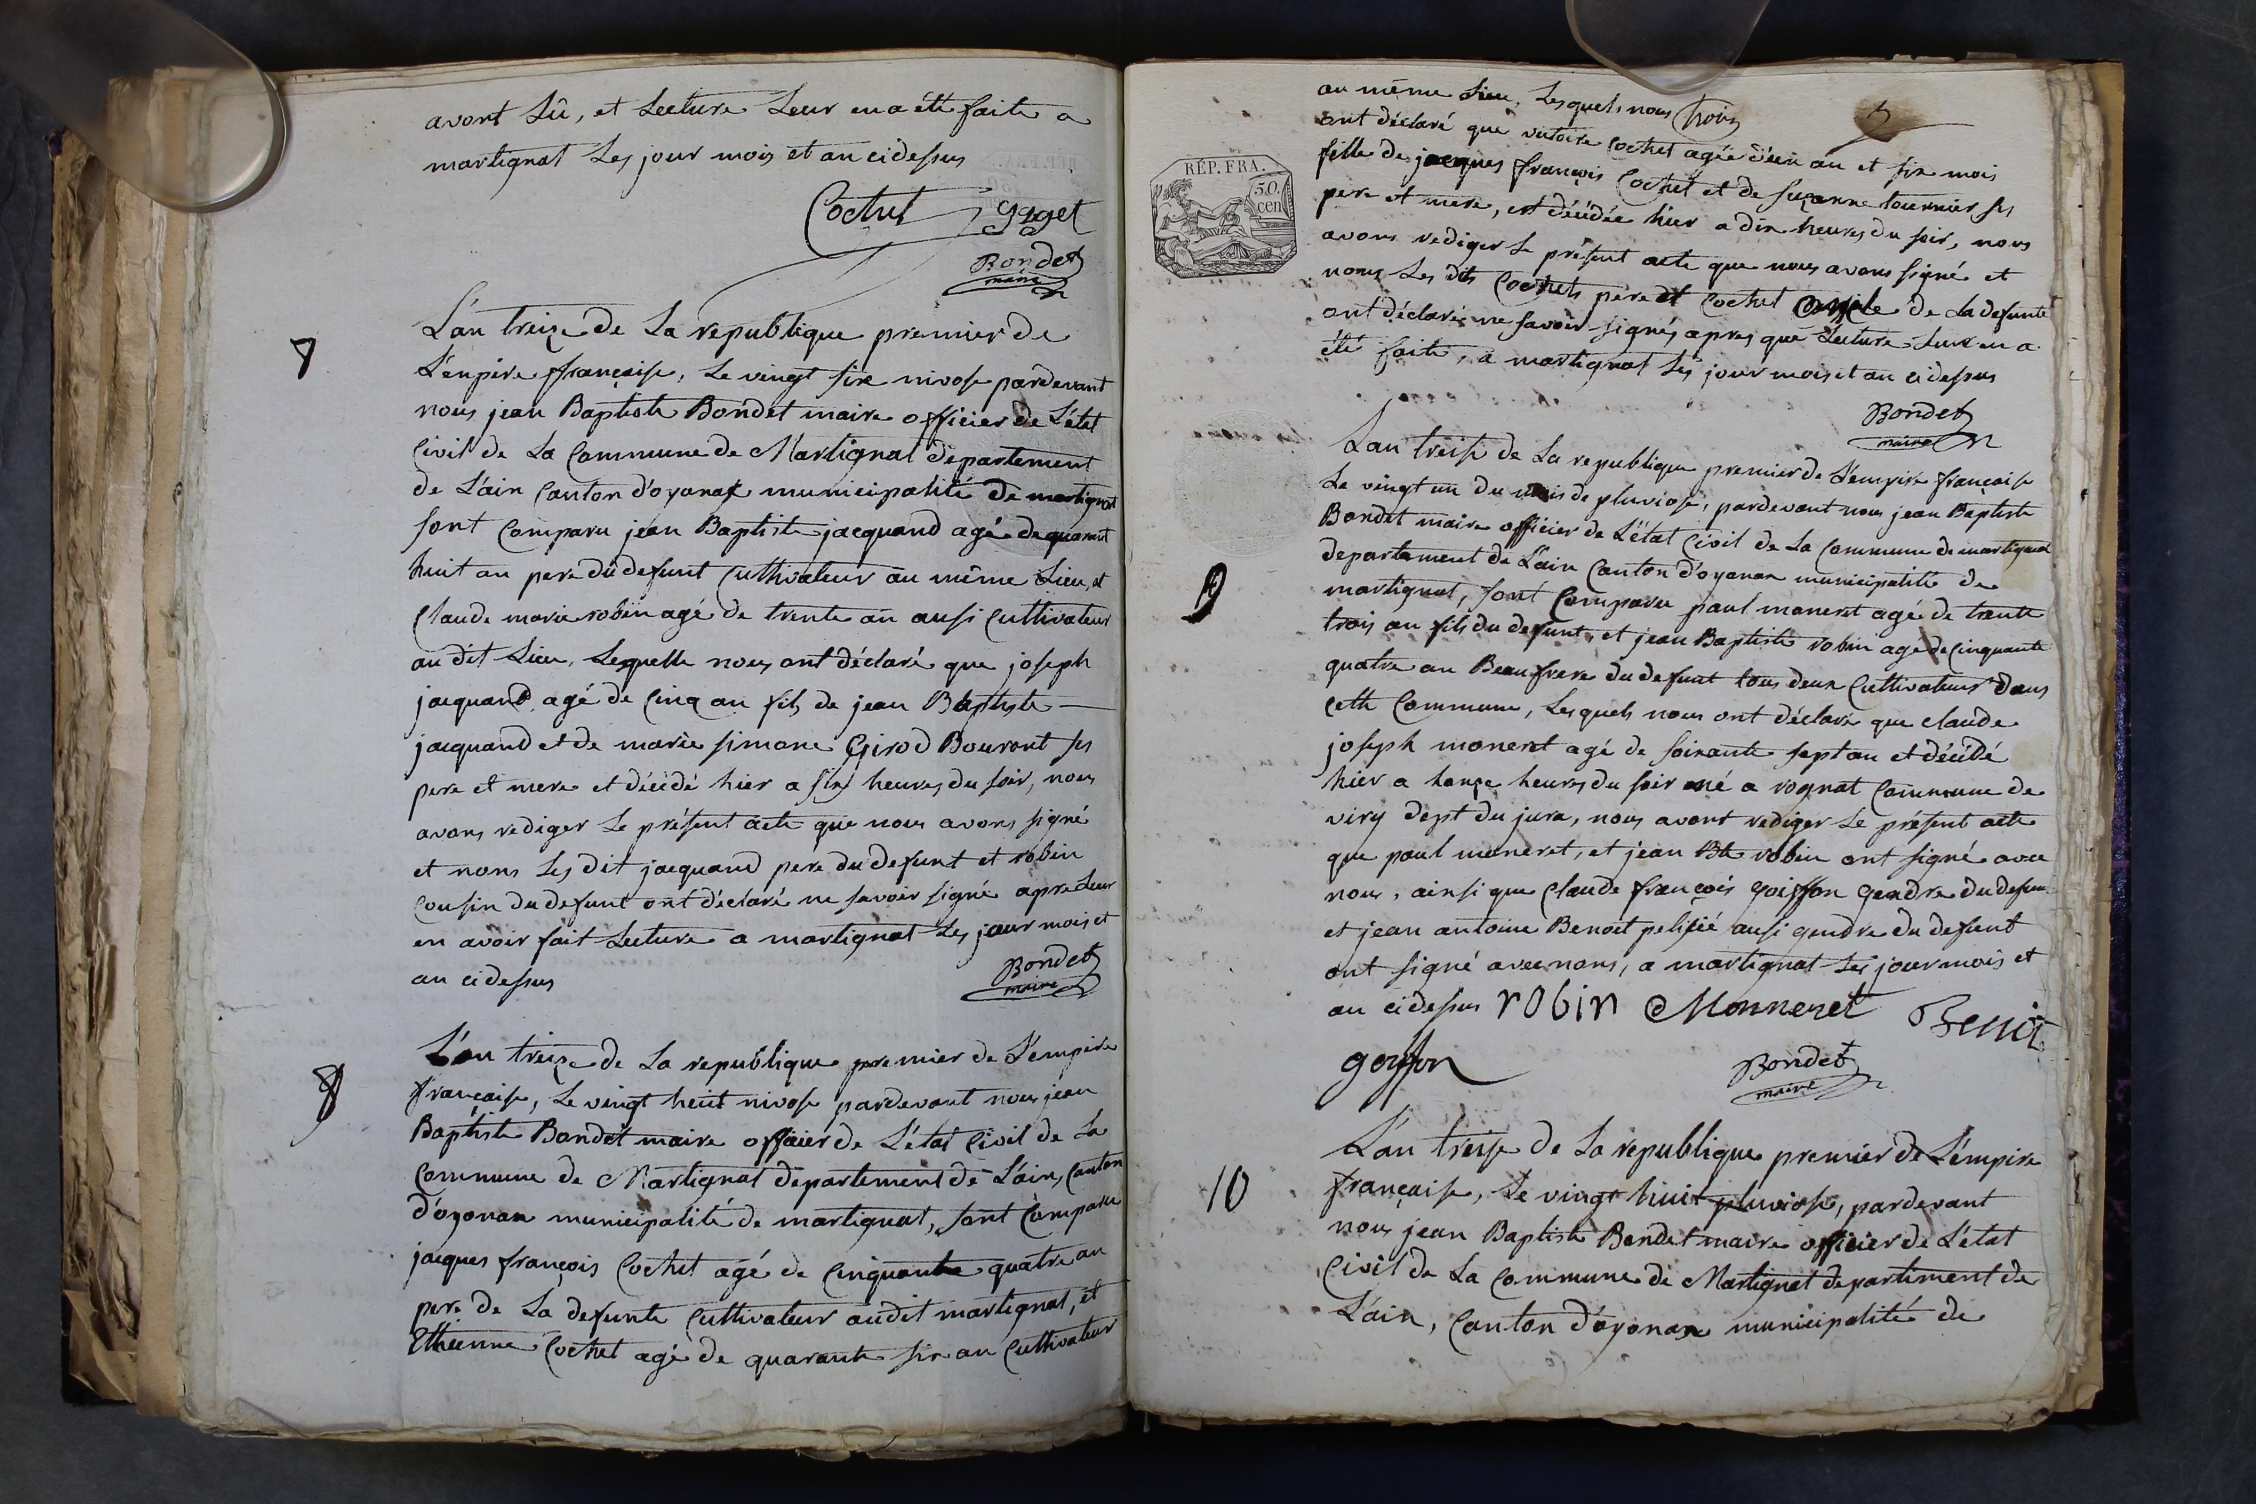 avont sû, et Lecture Leur en a été faite a
martignat Les jour mois et an cidessus
Cochet gyget
Bondet
maire
7
L'an treize de La republique premier de
L'empire française, Le vingt six nivose pardevant
nous jean Baptiste Bondet maire officier de L'état
Civil de La Commune de Martignat departement
de L'ain Canton d'oyonax municipalité de martignat
sont Comparu jean Baptiste jacquand agé de quarant
huit an pere du defunt Cultivateur au même Lieu, et
Claude marie robin agé de trente an aussi Cultivateur
au dit Lieu, Lequelle nous ont déclaré que joseph
jacquand agé de Cinq an fils de jean Baptiste
jacquand et de marie simone Girod Bouvont ses
pere et mere et décédé hier a six heures du soir, nous
avons rediger Le présent acte que nous avons signé
et nons Les dit jacquand pere du defunt et robin
Cousin du defunt ont déclaré ne savoir signé apre Leur
en avoir fait Lecture a martignat Les jour mois et
an cidessus
Bondet
maire
8
L'an treize de La republique premier de L'empire
française, Le vingt heut nivose pardevant nous jean
Baptiste Bondet maire officier de L'état Civil de La
Commune de Martignat departement de L'ain, Canton
d'oyonax municipalité de martignat, sont Comparu
jacques françois Cochet agé de Cinquante quatre an
pere de La defunte Cultivateur audit martignat, et
Ethienne Cochet agé de quarante six an Cultivateur
RÉP. FRA.
50.
cen
au même Lieu, Lesquels nous
ont déclaré que victoire Cochet agée d'un an et six mois
fille de jacques françois Cochet et de suzanne tournier ses
pere et mere, est décédée hier a dix heures du soir, nous
avons rediger Le présent acte que nous avons signé et
nons Les dits Cochets pere et Cochet oncle de La defunte
ont déclaré ne savoir signés apres que Lecture Leur en a
été faite, a martignat Les jour mois et an cidessus
Bondet
maire
9
L'an treise de La republique premier de L'empire française
Le vingt un du mois de pluviose, pardevant nous jean Baptiste
Bondet maire officier de L'état Civil de La Commune de martignat
departement de L'ain Canton d'oyonax municipalité de
martignat, sont Comparu paul moneret agé de trente
trois an fils du defunt, et jean Baptiste robin agé de Cinquante
quatre an Beaufrere du defunt tous deux Cultivateurs dans
Cette Commune, Lesquels nous ont déclaré que claude
joseph moneret agé de soixante sept an et décédé
hier a honze heures du soir né a rognat Commune de
viry dept du jura, nous avont rediger Le présent acte
que paul moneret, et jean Bte robin ont signé avec
nous, ainsi que Claude françois goiffon gendre du defunt
et jean antoine Benoit pelissié ausi gendre du defunt
ont signé avec nous, a martignat Les jour mois et
an cidessus robin Monneret Benoit
goiffon
Bondet
maire
10
L'an treise de La republique premier de L'empire
française, Le vingt huit pluviose, pardevant
nous jean Baptiste Bondet maire officier de L'état
Civil de La Commune de Martignat departement de
L'ain, Canton d'oyonax municipalité de